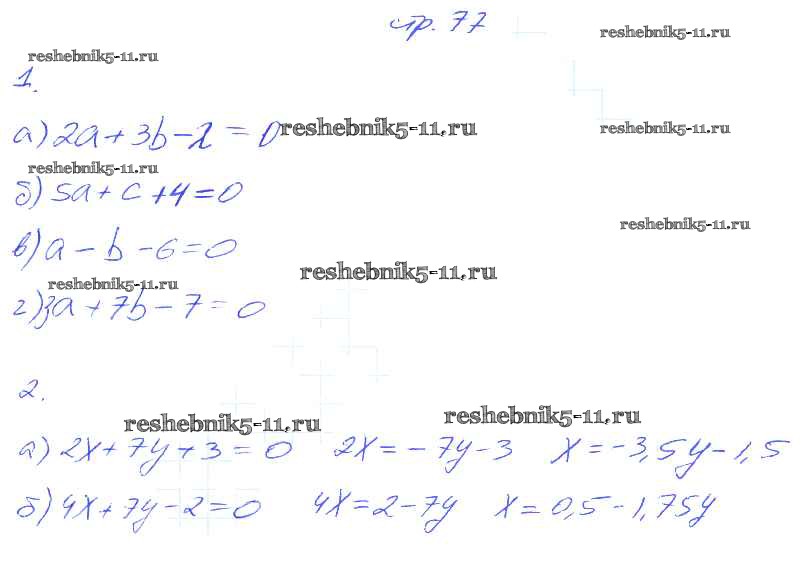 стр. 77
reshebnik5-11.ru
reshebnik5-11.ru
1.
а) 2a + 3b - 2 = 0
reshebnik5-11.ru
reshebnik5-11.ru
reshebnik5-11.ru
б) 5a + c + 4 = 0
reshebnik5-11.ru
в) a - b - 6 = 0
reshebnik5-11.ru
reshebnik5-11.ru
г) 3a + 7b - 7 = 0
2.
reshebnik5-11.ru
reshebnik5-11.ru
а) 2x + 7y + 3 = 0 2x = - 7y - 3 x = -3,5y - 1,5
б) 4x + 7y - 2 = 0 4x = 2 - 7y x = 0,5 - 1,75y